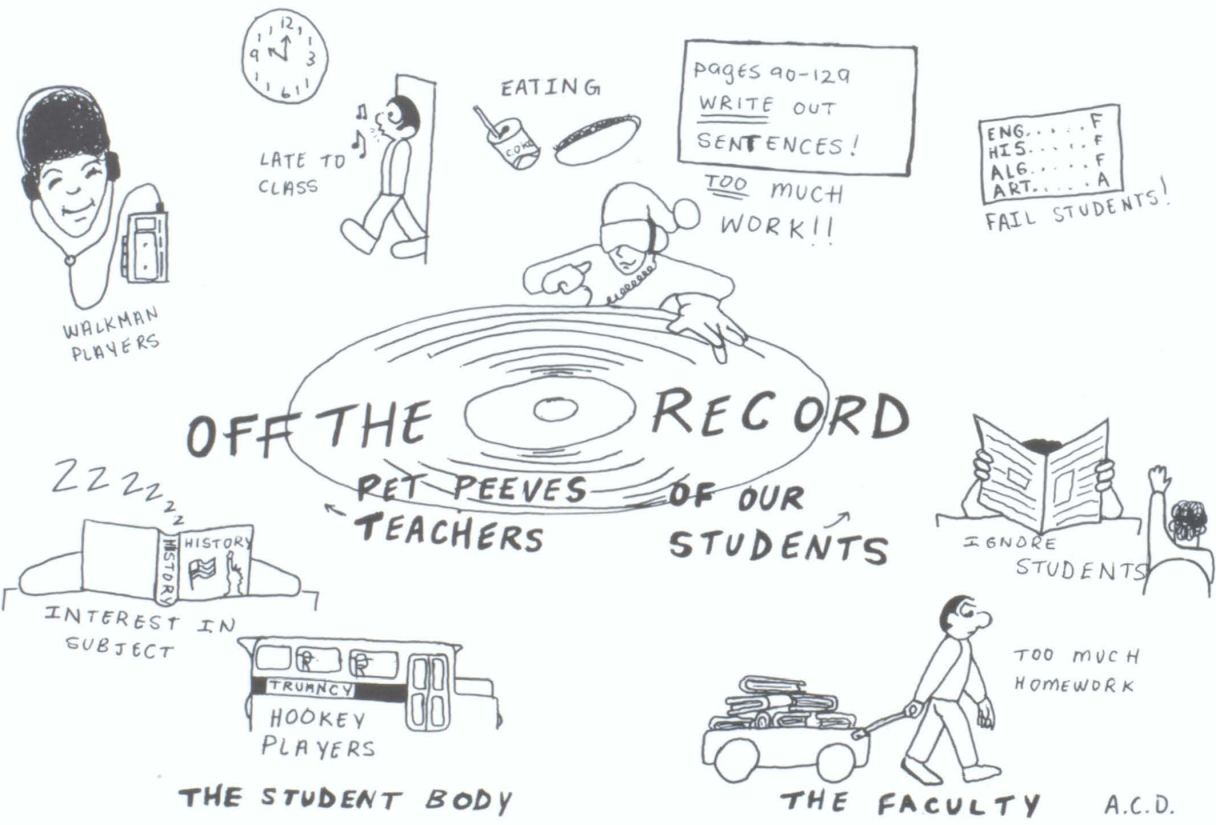 12
9
3
6
LATE TO
CLASS
EATING
COKE
PAGES 90-129
WRITE OUT
SENTENCES!
TOO MUCH
WORK!!
ENG.....F
HIS.....F
ALG.....F
ART.....A
FAIL STUDENTS!
WALKMAN
PLAYERS
OFF THE RECORD
PET PEEVES OF OUR
TEACHERS STUDENTS
ZZZZZZZ
HISTORY
HISTORY
INTEREST IN
SUBJECT
IGNORE
STUDENTS
TRUANCY
HOOKEY
PLAYERS
TOO MUCH
HOMEWORK
THE STUDENT BODY
THE FACULTY
A.C.D.